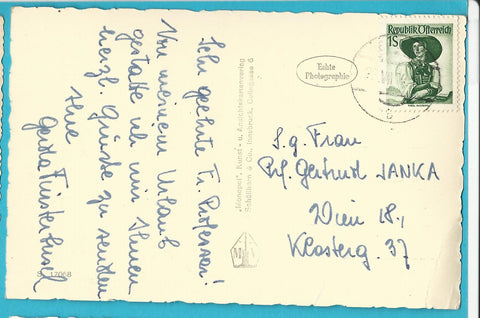 Sehr geehrte Fr. Professor!
Von meinem Urlaub
gestatte ich mir Ihnen
herzl. Grüsse zu senden
Ihre
Gerda Finsterbusel
S 12068
"Monopol", Kunst- u. Ansichtskartenverlag
Schöllhorn & Co., Innsbruck,
Echte
Photographie
Republik Österreich
1S
S.g. Frau
Prf. Gertrud JANKA
Wien 18.,
Klosterg. 37